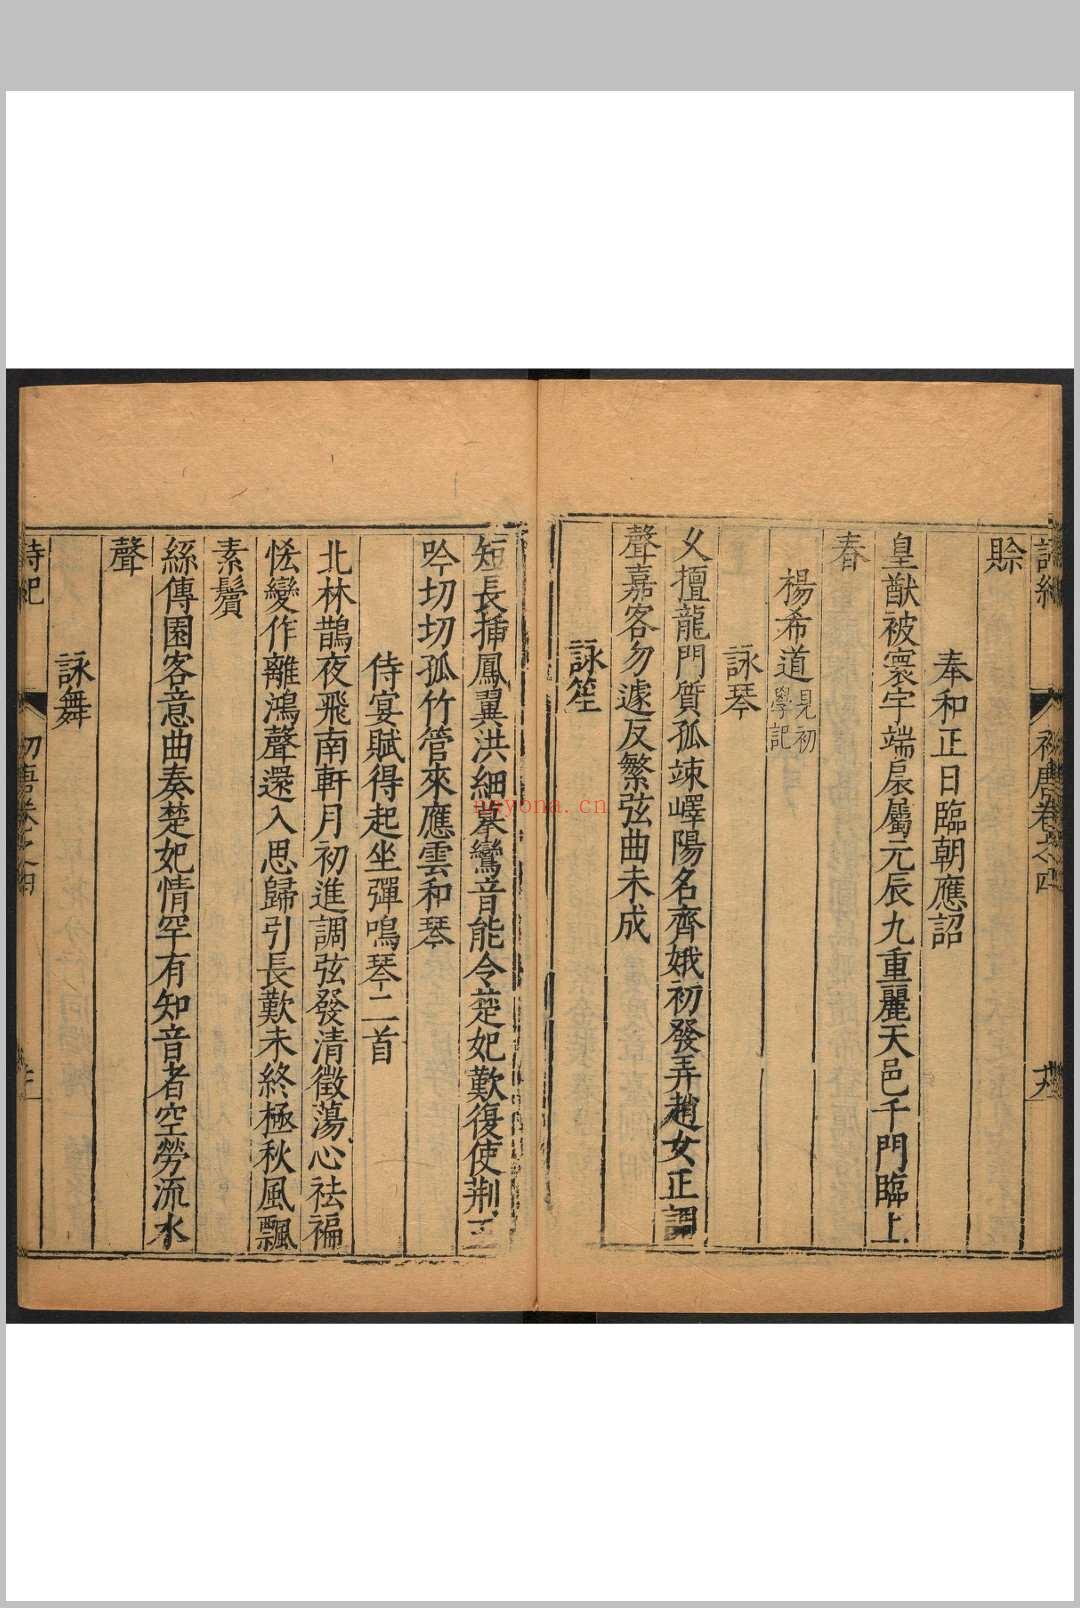 賒
奉和正日臨朝應詔
皇猷被寰宇端扆屬元辰九重麗天邑千門臨上
春
楊希道見初學記
詠琴
乂擅龍門質孤竦嶧陽名齊娥初發弄趙女正調
聲嘉客勿遽反繁弦曲未成
詠笙
短長插鳳翼洪細摹鸞音能令楚妃歎復使荆王
吟切切孤竹管來應雲和琴
侍宴賦得起坐彈鳴琴二首
北林鵲夜飛南軒月初進調弦發清徵蕩心祛褊
恡變作離鴻聲還入思歸引長歎未終極秋風飄
素鬢
絲傳園客意曲奏楚妃情罕有知音者空勞流水
聲
詠舞
詩紀
初唐卷之四
nayona.cn